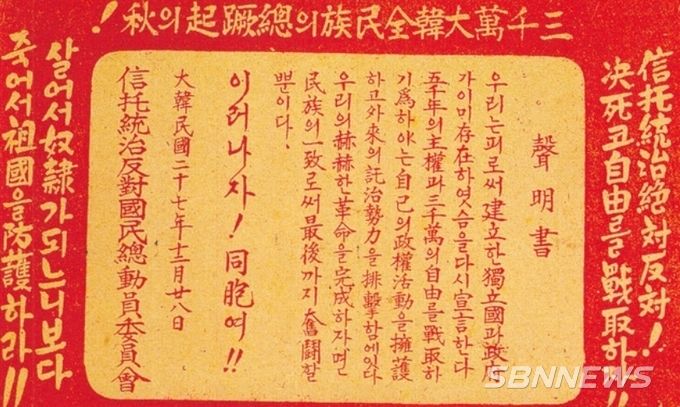 三千萬大韓全民族의總蹶起의秋!
信托統治絶対反対!
決死코自由를戰取하자!!
聲明書
우리는피로써建立한獨立國과政府
가이미存在하엿슴을다시宣言한다
五千年의主權과三千萬의自由를戰取하
기爲하야는自己의政權活動을擁護
하고外來의託治勢力을排擊함에잇다
우리의赫赫한革命을完成하자면
民族의一致로써最後까지奮鬪할
뿐이다.
이러나자! 同胞여!!
大韓民國二十七年十二月廿八日
信托統治反對國民總動員委員會
살어서奴隸가되느니보다
죽어서祖國을防護하라!!
SBNNEWS